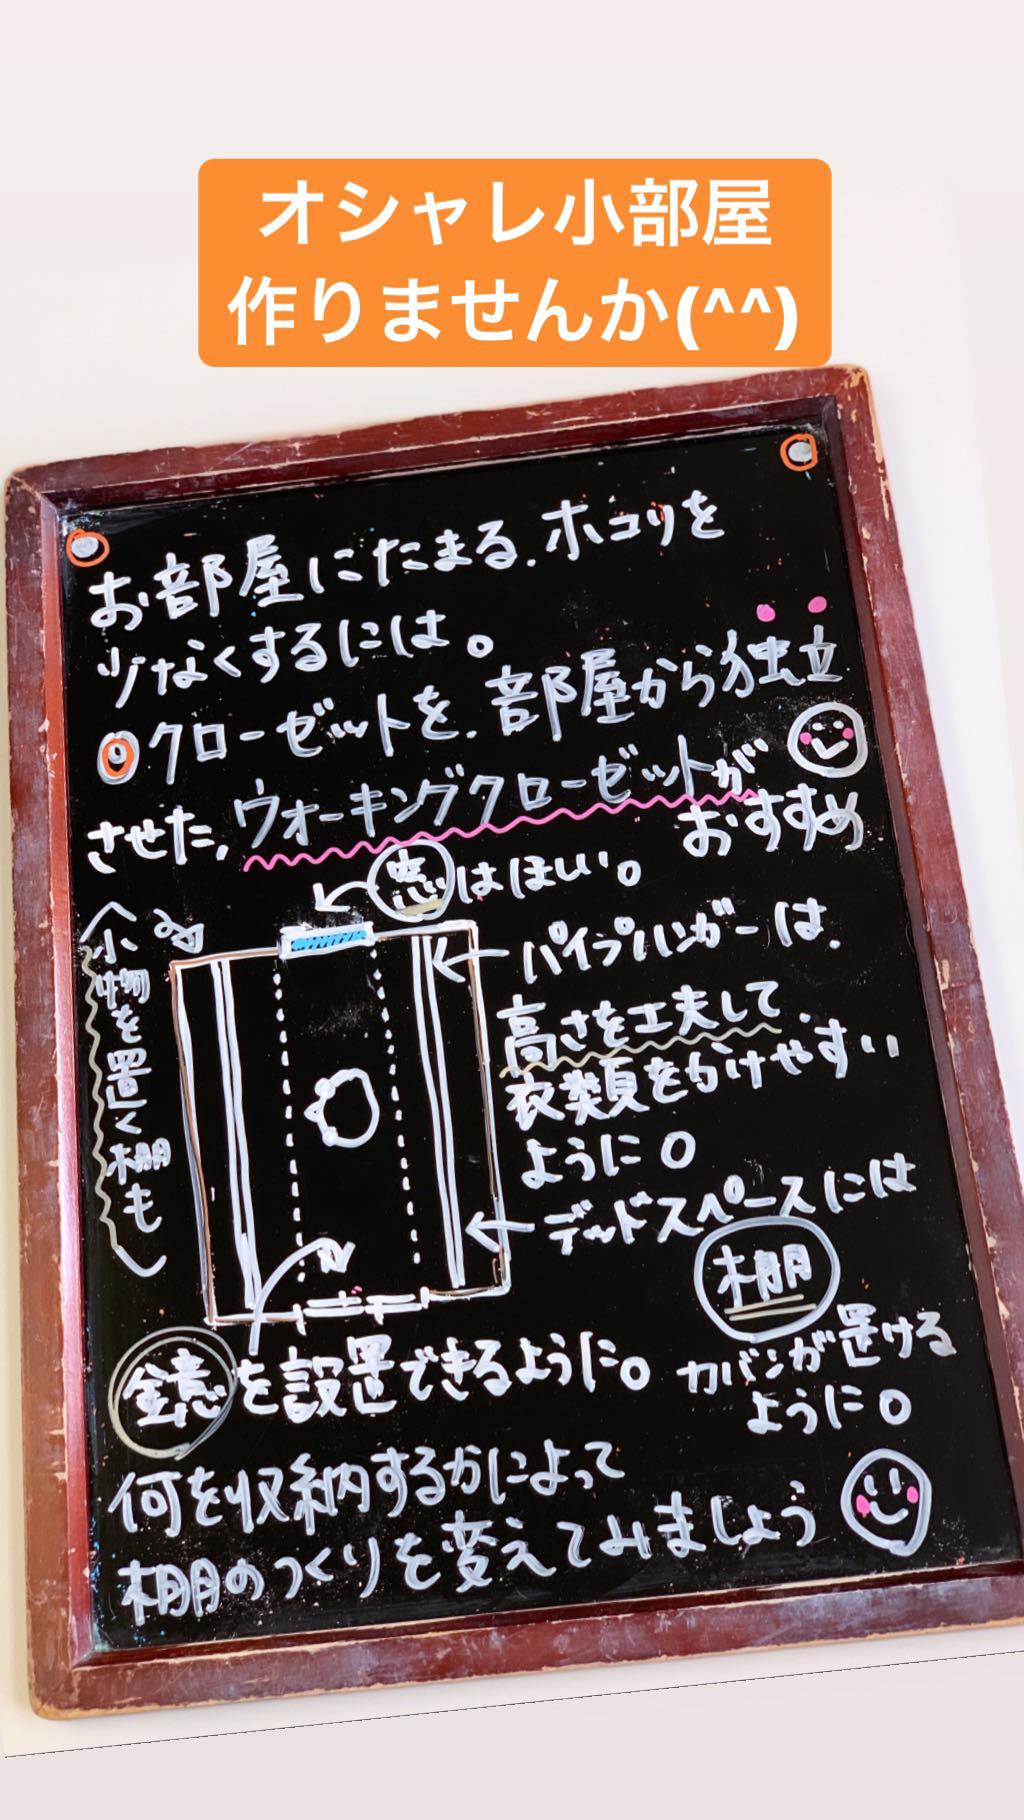 オシャレ小部屋
作りませんか(^^)
お部屋にたまる.ホコリを
少なくするには。
クローゼットを.部屋から独立
させた,ウォーキングクローゼットが
おすすめ
窓はほしい。
小物を置く棚も
パイプハンガーは.
高さを工夫して.
衣類をかけやすい
ように。
デッドスペースには
棚
カバンが置ける
ように。
鏡を設置できるように。
何を収納するかによって
棚のつくりを変えてみましょう